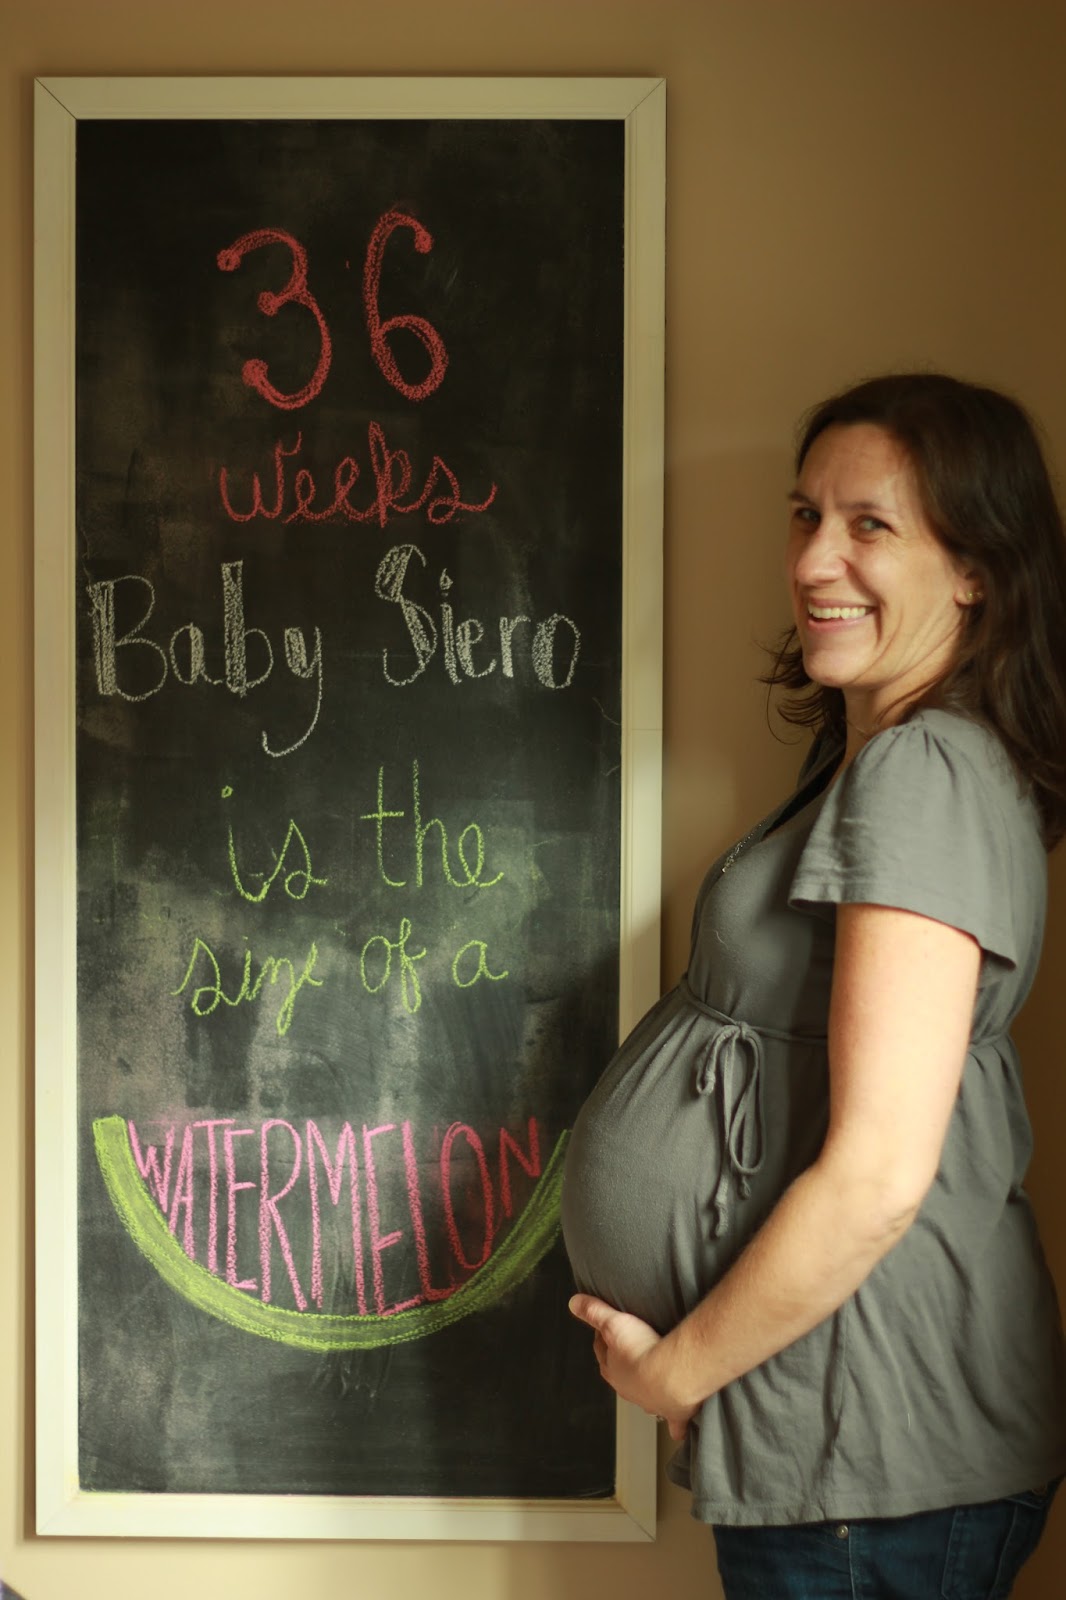 36
weeks
Baby Siero
is the
size of a
WATERMELON